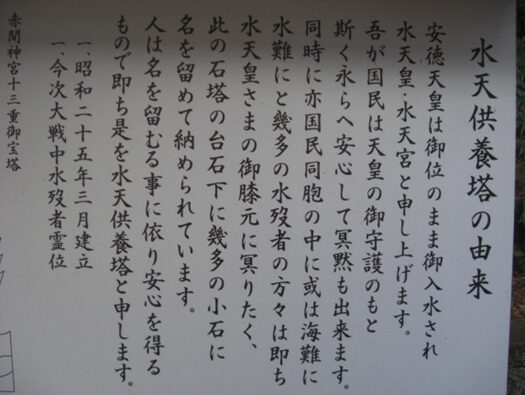 水天供養塔の由来
安徳天皇は御位のまま御入水され
水天皇・水天宮と申し上げます。
吾が国民は天皇の御守護のもと
斯く永らへ安心して冥黙も出来ます。
同時に亦国民同胞の中に或は海難に
水難にと幾多の水歿者の方々は即ち
水天皇さまの御膝元に冥りたく、
此の石塔の台石下に幾多の小石に
名を留めて納められています。
人は名を留むる事に依り安心を得る
もので即ち是を水天供養塔と申します。
一、昭和二十五年三月建立
一、今次大戦中水歿者霊位
赤間神宮十三重御宝塔